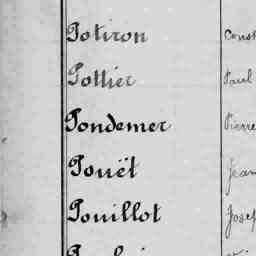 Potiron Const
Pottier Paul
Pondemer Pierre
Pouët Jean
Pouillot Josep